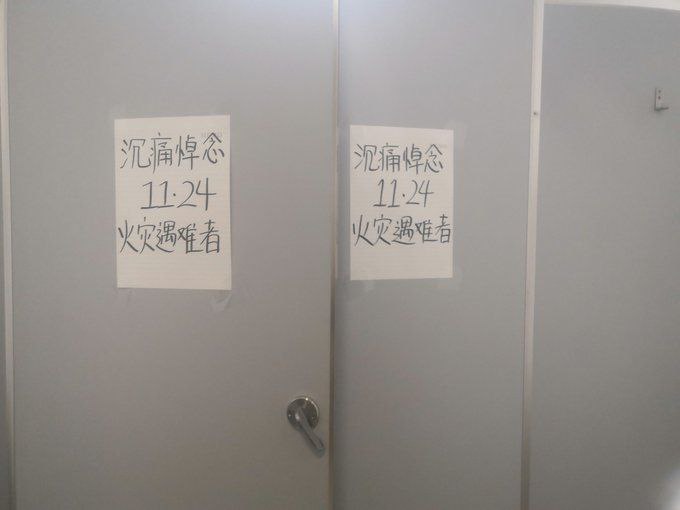 沉痛悼念
11.24
火灾遇难者
沉痛悼念
11.24
火灾遇难者